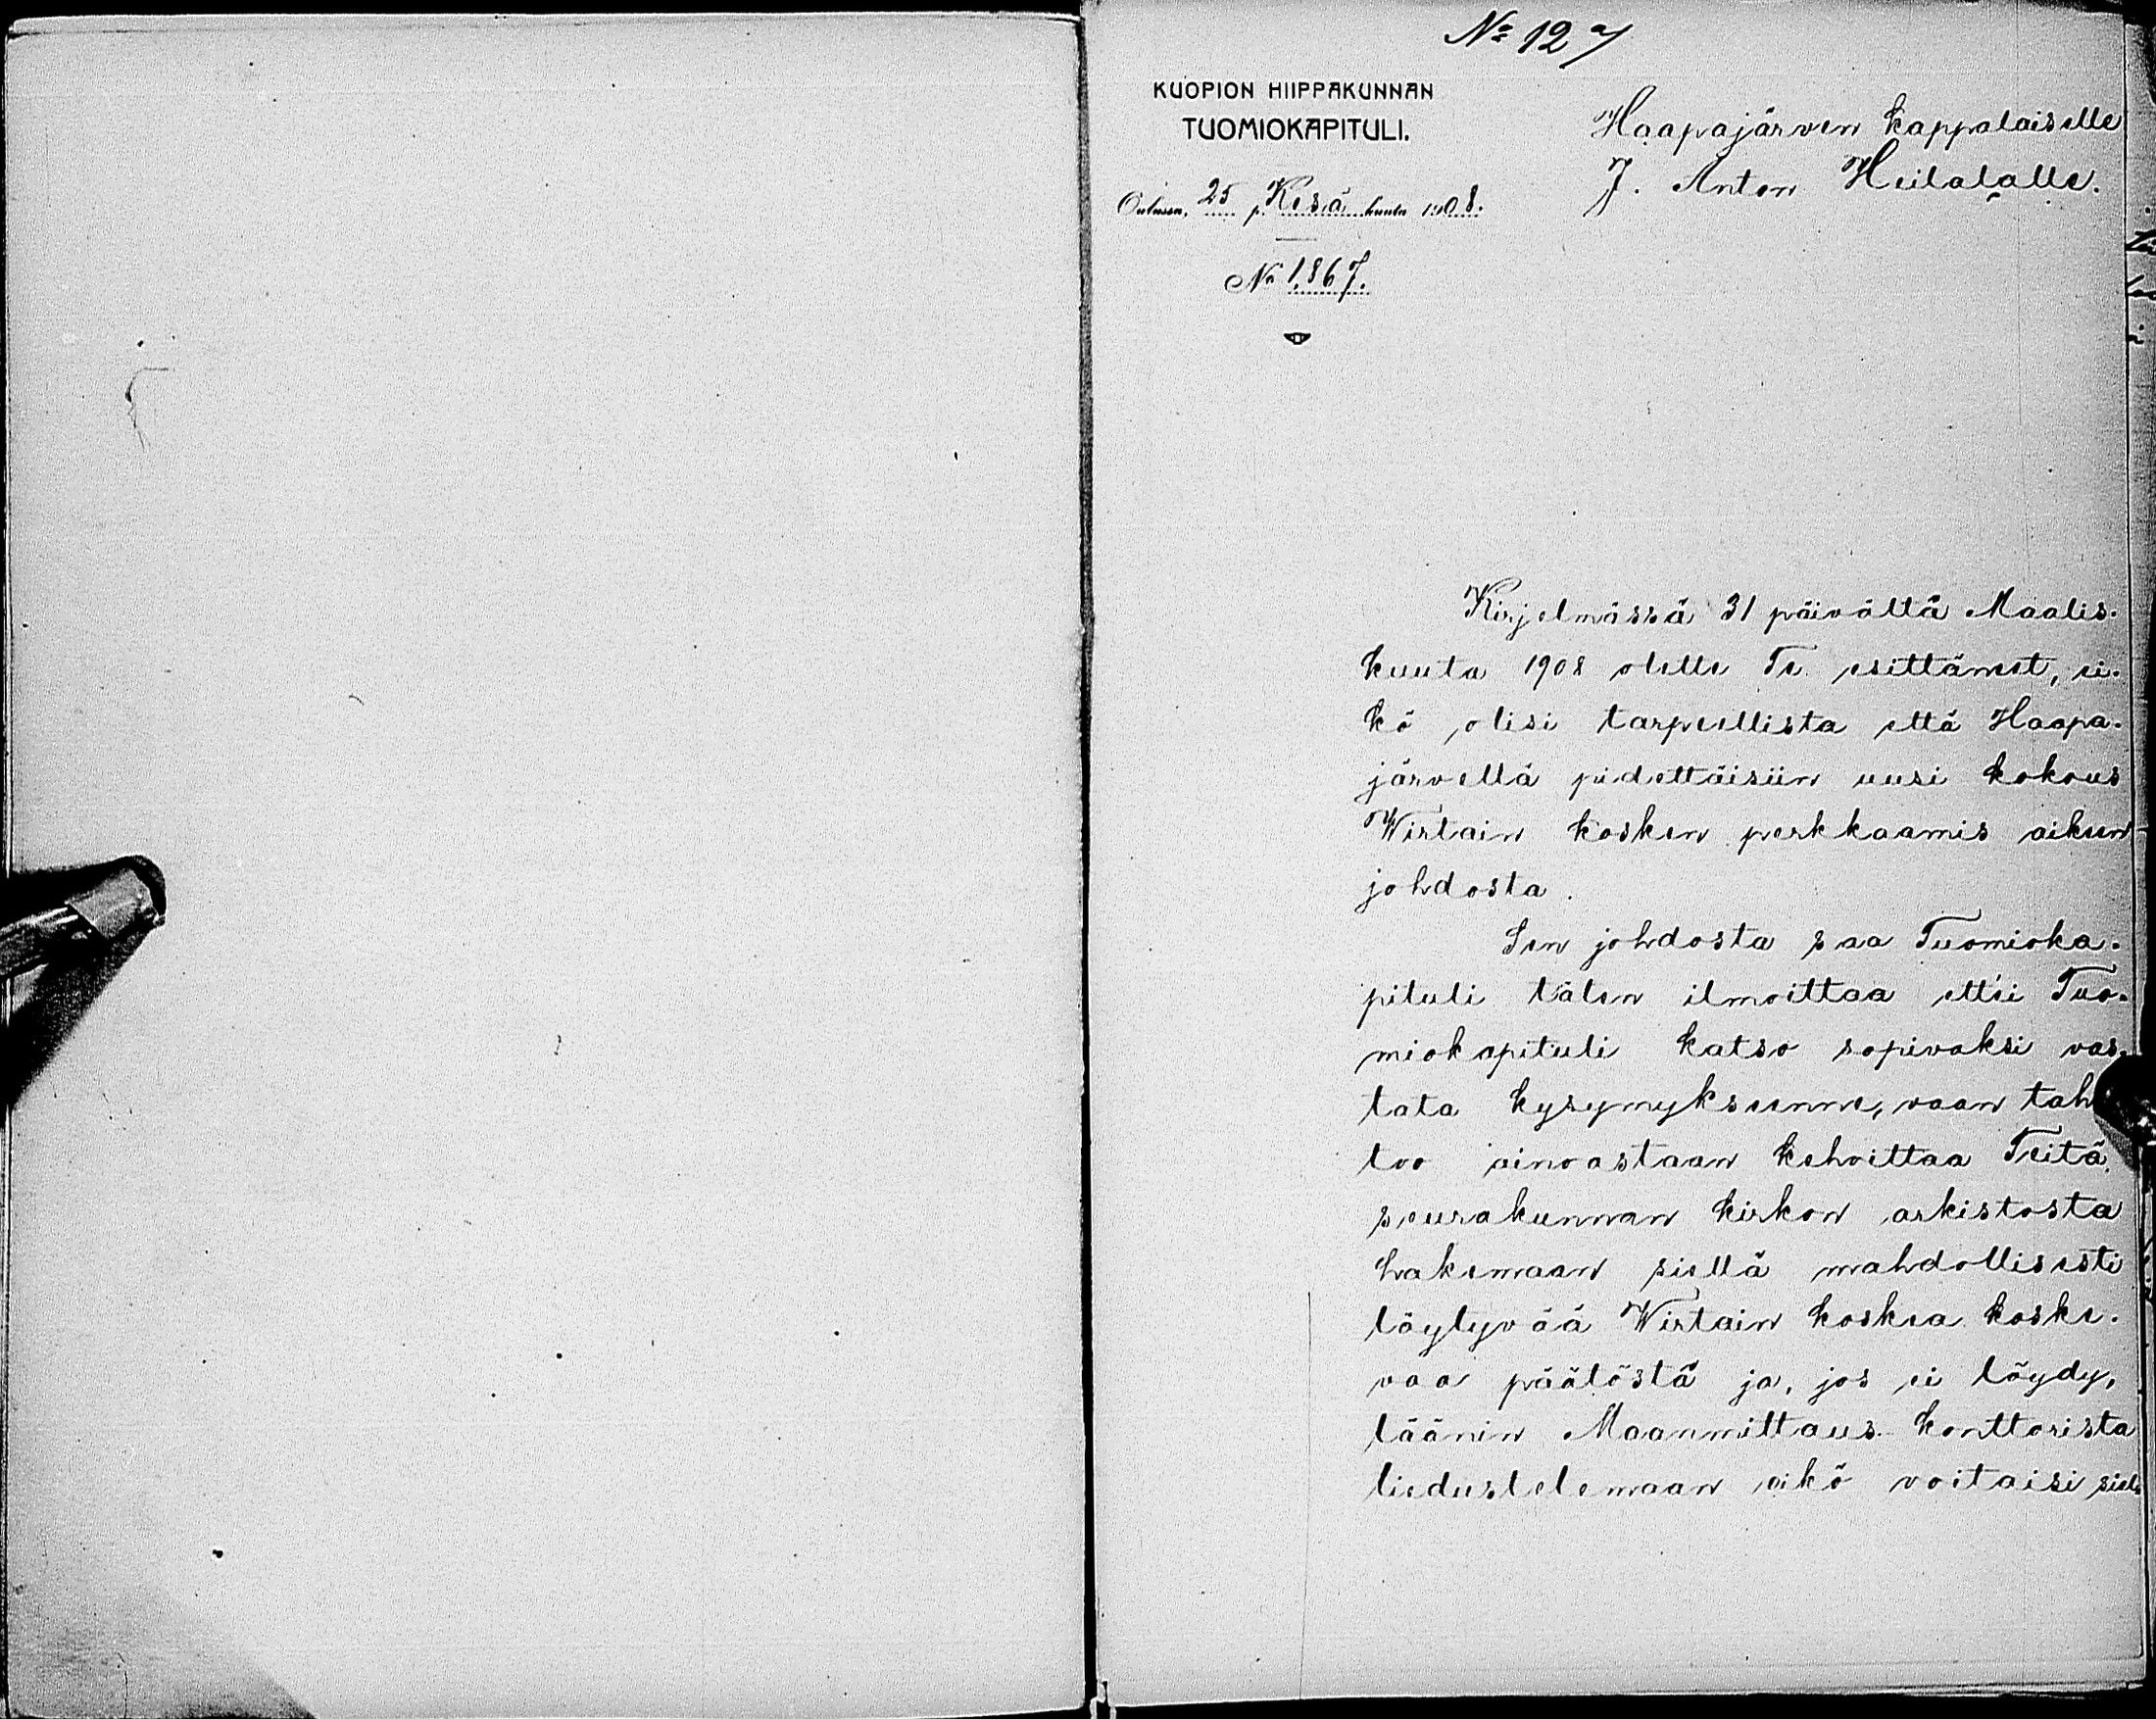 No 127
KUOPION HIIPPAKUNNAN
TUOMIOKAPITULI.
Oulussa, 25 p. Kesä kuuta 1908.
No 1,867.
Haapajärven kappalaiselle
J. Anton Heilalalle.
Kirjelmässä 31 päivältä Maalis-
kuuta 1908 olette Te esittänet, ei-
kö olisi tarpeellista että Haapa-
järvellä pidettäisiin uusi kokous
Wirtain kosken perkkaamis aikeen
johdosta.
Sen johdosta saa Tuomioka-
pituli täten ilmoittaa ett'ei Tuo-
miokapituli katso sopivaksi vas-
tata kysymykseenne, vaan tah
too ainoastaan kehoittaa Teitä
seurakunnan kirkon arkistosta
hakemaan siellä mahdollisesti
löytyvää Wirtain koskea koske-
vaa päätöstä ja, jos ei löydy,
läänin Maanmittaus-konttorista
tiedustelemaan eikö voitaisi siel